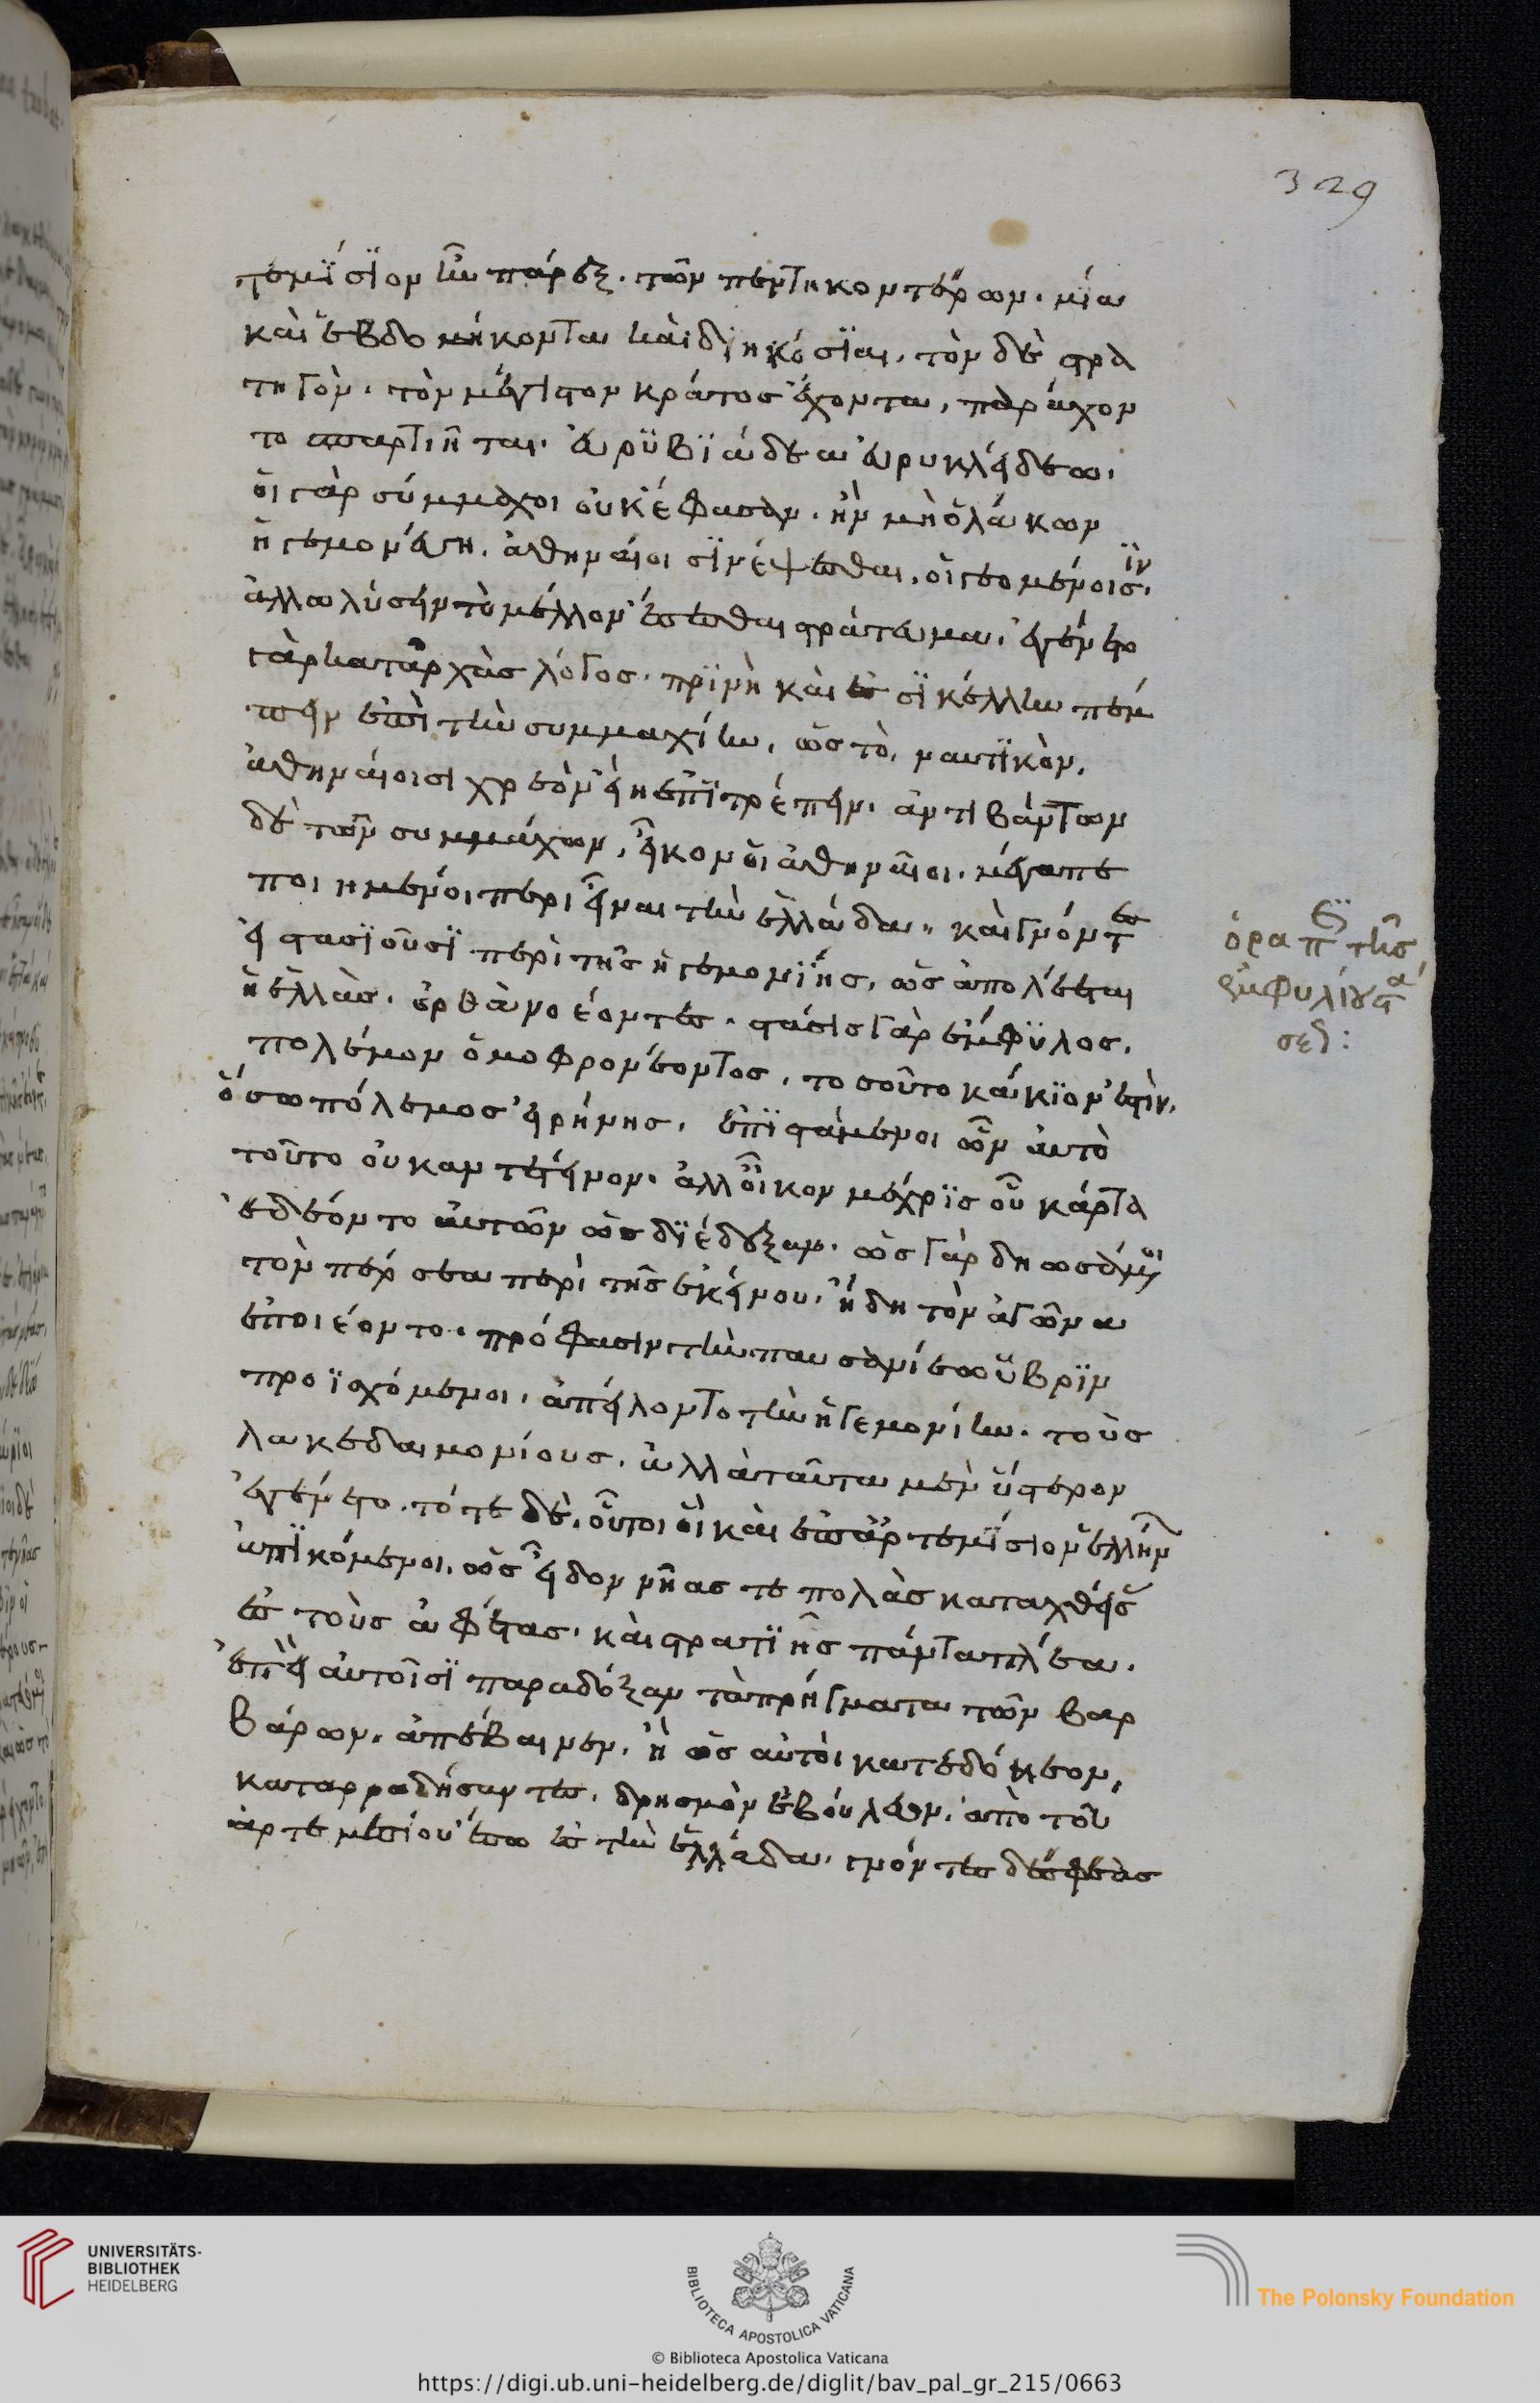 329
τεμίσιον ἦν πάρεξ. τῶν πεντηκοντέρων. μία
καὶ ἑβδομήκοντα καὶ διηκόσιαι. τὸν δὲ στρα
τηγὸν. τὸν μέγιστον κράτος ἔχοντα, παρείχον
το σπαρτιῆται. εὐρυβιάδεα εὐρυκλείδεω.
οἱ γὰρ σύμμαχοι οὐκ ἔφασαν. ἢν μὴ ὁ λάκων
ἡγεμονεύῃ. ἀθηναίοισιν ἕψεσθαι. ἡγεομένοισιν.
ἀλλὰ λύσειν τὸ μέλλον ἔσεσθαι στράτευμα. ἐγένετο
γὰρ κατ' ἀρχὰς λόγος. πρὶν ἢ καὶ ἐς σικελίην πέμ
πειν ἐπὶ συμμαχίην, ὡς τὸ, ναυτικὸν.
ἀθηναίοισι χρεὸν εἴη ἐπιτρέπειν. ἀντιβάντων
δὲ τῶν συμμάχων, εἶκον οἱ ἀθηναῖοι. μέγα πε
ποιημένοι περιεῖναι τὴν ἑλλάδα. καὶ γνόντες
εἰ στασιοῦσι περὶ τῆς ἡγεμονίης, ὡς ἀπολέεται
ἡ ἑλλὰς. ὀρθὰ νοέοντες. στάσις γὰρ ἔμφυλος.
πολέμου ὁμοφρονέοντος, τοσοῦτο κάκιον ἐστὶν.
ὅσω πόλεμος εἰρήνης. ἐπιστάμενοι ὦν αὐτὸ
τοῦτο οὐκ ἀντέτεινον. ἀλλ' εἶκον μέχρις οὗ κάρτα
ἐδέοντο αὐτῶν ὡς διέδεξαν. ὡς γὰρ δὴ ὠσάμενοι
τὸν πέρσεα περὶ τῆς ἐκείνου. ἤδη τὸν ἀγῶνα
ἐποιέοντο. πρόφασιν τὴν παυσανίεω ὕβριν
προϊσχόμενοι. ἀπείλοντο τὴν ἡγεμονίην. τοὺς
λακεδαιμονίους. ἀλλὰ ταῦτα μὲν ὕστερον
ἐγένετο. τότε δὲ. οὗτοι οἱ καὶ ἐπ' ἀρτεμίσιον ἑλλήνων
ἀπικόμενοι. ὡς εἶδον νῆας τε πολὰς καταχθείσας
ἐς τοὺς ἀφέτας. καὶ στρατιῆς πάντα πλέα.
ἐπεὶ αὐτοῖσι παραδόξαν τὰ πρήγματα τῶν βαρ
βάρων. ἀπέβαινεν. ἢ ὡς αὐτοὶ κατεδόκεον,
καταρρωδήσαντες. δρησμὸν ἐβούλευον. ἀπὸ τοῦ
ἀρτεμισίου ἔσω ἐς τὴν ἑλλάδα. γνόντες δέ σφεας
ὅρα π τῆς
ἐμφυλίου στ
σεως:
UNIVERSITÄTS-
BIBLIOTHEK
HEIDELBERG
BIBLIOTECA APOSTOLICA VATICANA
The Polonsky Foundation
© Biblioteca Apostolica Vaticana
https://digi.ub.uni-heidelberg.de/diglit/bav_pal_gr_215/0663